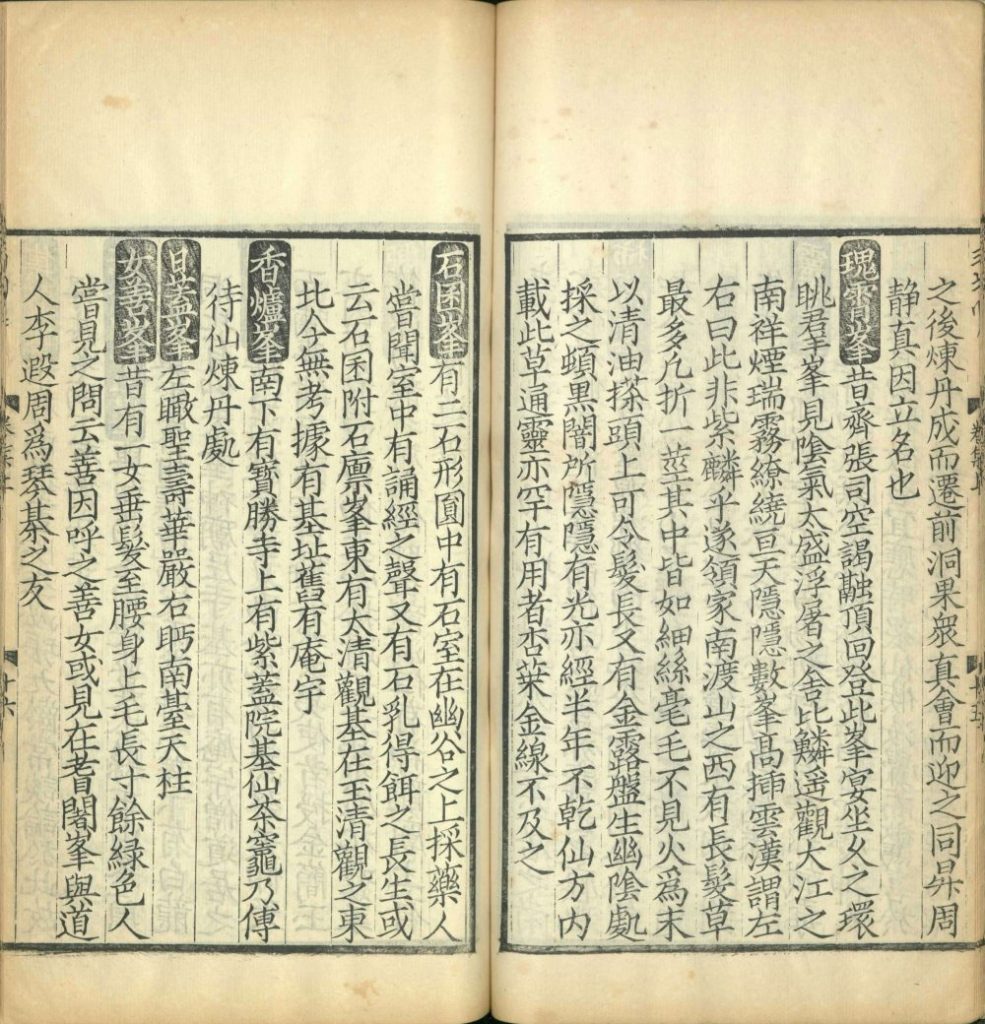 之後煉丹成而遷前洞果衆真會而迎之同昇周
静真因立名也
瑰霄峯昔齊張司空謁融頂回登此峯宴坐久之環
眺君峯見陰氣太盛浮屠之舍比鱗遥觀大江之
南祥煙瑞霧繚繞亘天隱隱數峯髙揷雲漢謂左
右曰此非紫麟乎遂領家南渡山之西有長髮草
最多凢折一莖其中皆如細絲毫毛不見火爲末
以清油搽頭上可令髮長又有金露盤生幽陰處
採之頓黒闇所隱隱有光亦經半年不乾仙方内
載此草通靈亦罕有用者杏葉金線不及之
石囷峯有二石形圓中有石室在幽谷之上採藥人
嘗聞室中有誦經之聲又有石乳得餌之長生或
云石囷附石廪峯東有太清觀基在玉清觀之東
比今無考據有基址舊有庵宇
香爐峯南下有寳勝寺上有紫蓋院基仙茶竈乃傅
待仙煉丹處
日蓋峯左瞰聖壽華嚴右眄南臺天柱
女善峯昔有一女垂髮至腰身上毛長寸餘緑色人
嘗見之問云善因呼之善女或見在耆闍峯與道
人李遐周爲琴棊之友